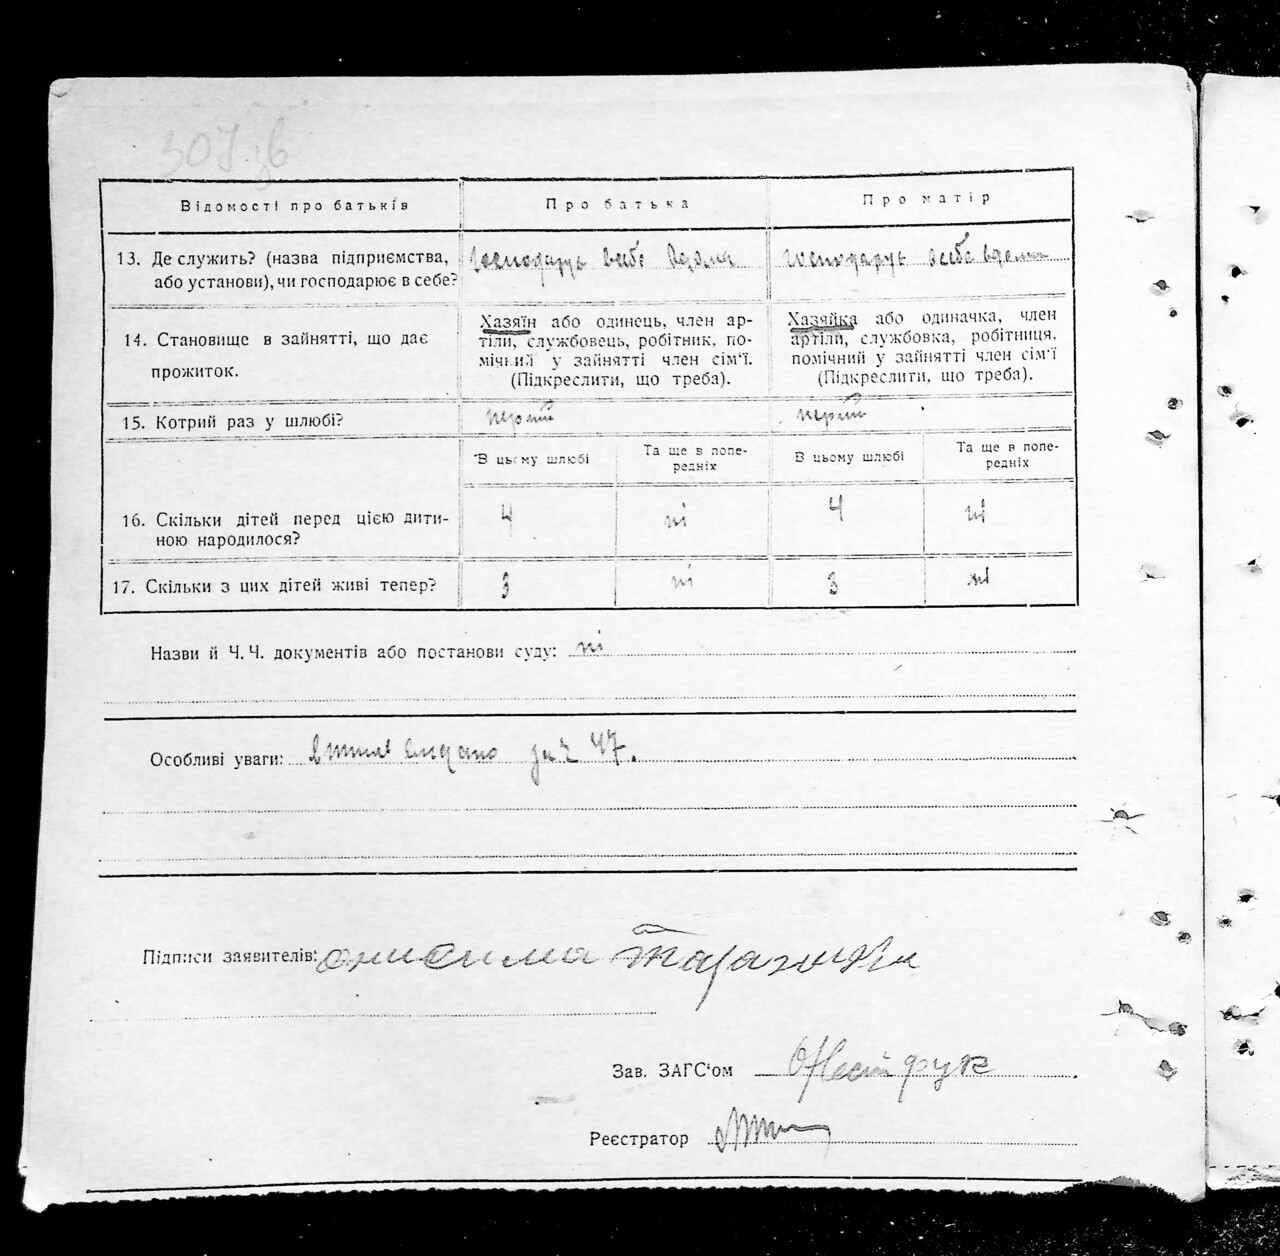 307 зв
Відомості про батьків
Про батька
Про матір
13. Де служить? (назва підприємства,
або установи), чи господарює в себе?
господарує в себе вдома
господарує в себе вдома
14. Становище в зайнятті, що дає
прожиток.
Хазяїн або одинець, член ар-
тіли, службовець, робітник, по-
мічний у зайнятті член сім'ї.
(Підкреслити, що треба).
Хазяйка або одиначка, член
артіли, службовка, робітниця,
помічний у зайнятті член сім'ї
(Підкреслити, що треба).
15. Котрий раз у шлюбі?
перший
перший
В цьому шлюбі
Та ще в попе-
редніх
В цьому шлюбі
Та ще в попе-
редніх
16. Скільки дітей перед цією дити-
ною народилося?
4
ні
4
ні
17. Скільки з цих дітей живі тепер?
3
ні
3
ні
Назви й Ч. Ч. документів або постанови суду: ні
Особливі уваги: видано за ч 47.
Підписи заявителів:
Зав. ЗАГС'ом
Реєстратор